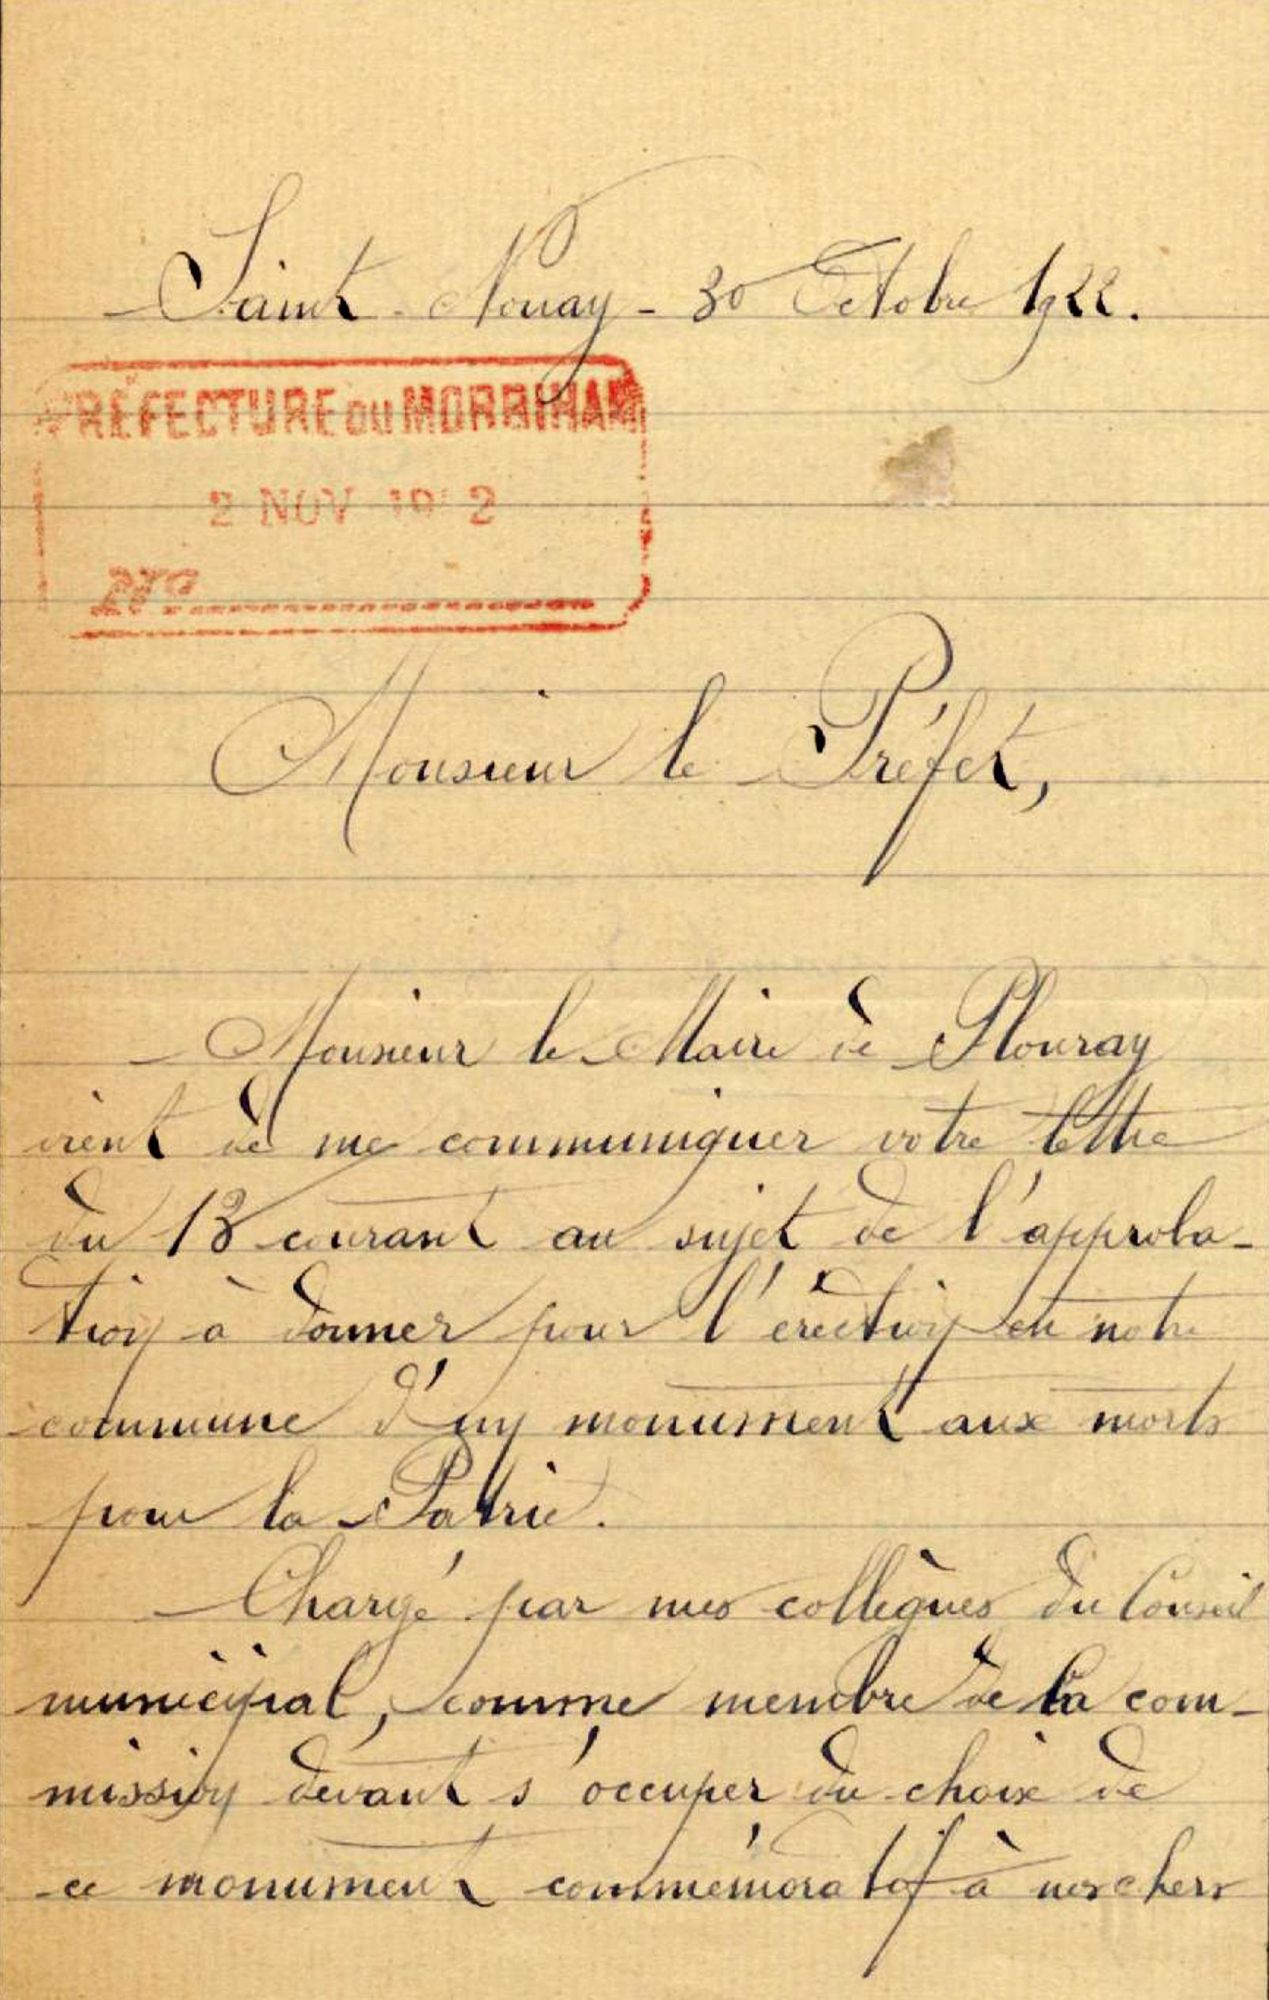 Saint-Nouay - 30 Octobre 1922.
PRÉFECTURE DU MORBIHAN
2 NOV 19 2
No
Monsieur le Préfet,
Monsieur le Maire de Plouray
vient de me communiquer votre lettre
du 13 courant au sujet de l'approba-
tion à donner pour l'érection en notre
commune d'un monument aux morts
pour la Patrie.
Chargé par mes collègues du Conseil
municipal, comme membre de la com-
mission devant s'occuper du choix de
ce monument commémoratif à nos chers